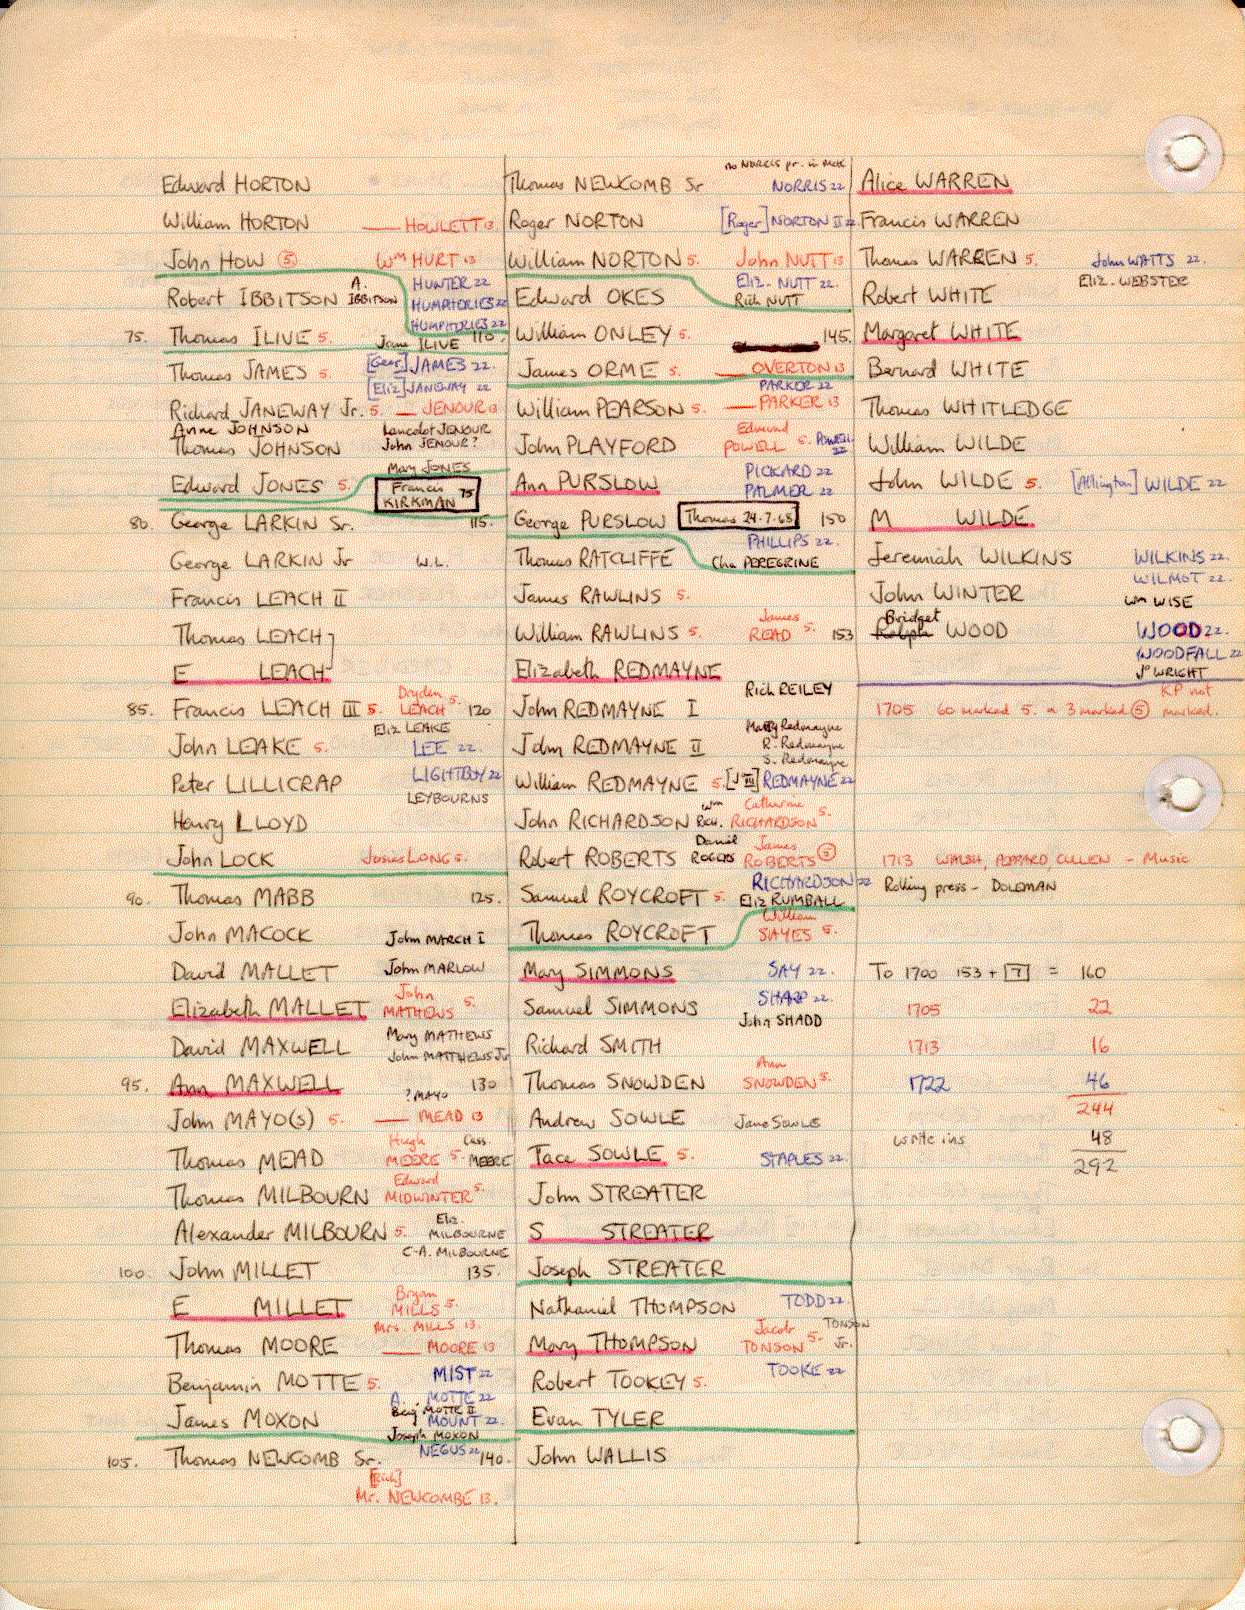 Edward HORTON
William HORTON
—— HOWLETT 13.
John HOW ⑤
Wm HURT 13
HUNTER 22
Robert IBBITSON
A. IBBITSON
HUMPHERIES 22
HUMPHERIES 22
75. Thomas ILIVE 5.
Jane ILIVE
Thomas JAMES 5.
[Geor.] JAMES 22.
[Eliz] JANEWAY 22
Richard JANEWAY Jr. 5.
—— JENOUR 13
Anne JOHNSON
Lancelot JENOUR
Thomas JOHNSON
John JENOUR?
Mary JONES
Edward JONES 5.
Francis KIRKMAN 75
80. George LARKIN Sr.
George LARKIN Jr
W.L.
Francis LEACH II
Thomas LEACH
E LEACH
85. Francis LEACH III 5.
Dryden LEACH 5.
Eliz LEAKE
John LEAKE 5.
LEE 22.
Peter LILLICRAP
LIGHTBOY 22
LEYBOURNS
Henry LLOYD
John LOCK
Josias LONG 5.
90. Thomas MABB
John MACOCK
John MARCH I
David MALLET
John MARLOW
Elizabeth MALLET
John MATHEWS 5.
David MAXWELL
Mary MATHEWS
John MATTHEWS Jr
95. Ann MAXWELL
? MAYO
John MAYO(S) 5.
—— MEAD 13
Thomas MEAD
Hugh MEERE 5.
Cass. MEERE
Thomas MILBOURN
Edward MIDWINTER 5.
Alexander MILBOURN 5.
Eliz. MILBOURNE
C-A. MILBOURNE
100. John MILLET
E MILLET
Bryan MILLS 5.
Mrs. MILLS 13.
Thomas MOORE
—— MOORE 13
Benjamin MOTTE 5.
MIST 22
A. MOTTE 22
James MOXON
Benj. MOTTE II
MOUNT 22.
Joseph MOXON
105. Thomas NEWCOMB Sr.
NEGUS 22
[Rich] Mr. NEWCOMBE 13.
no NORRIS pr. in McK
Thomas NEWCOMB Sr
NORRIS 22
Roger NORTON
[Roger] NORTON II 22
William NORTON 5.
John NUTT 13
Eliz. NUTT 22.
Edward OKES
Rich NUTT
110. William ONLEY 5.
James ORME 5.
—— OVERTON 13
PARKER 22
William PEARSON 5.
—— PARKER 13
John PLAYFORD
Edmund POWELL 5.
POWELL 22
PICKARD 22
Ann PURSLOW
PALMER 22
115. George PURSLOW
Thomas 24-7-68
PHILLIPS 22.
Thomas RATCLIFFE
Cha PEREGRINE
James RAWLINS 5.
William RAWLINS 5.
James READ 5.
Elizabeth REDMAYNE
Rich REILEY
120 John REDMAYNE I
Mary Redmayne
John REDMAYNE II
R. Redmayne
S. Redmayne
William REDMAYNE 5.
[J III] REDMAYNE 22
John RICHARDSON
Wm RICH.
Catherine RICHARDSON 5.
Robert ROBERTS
Daniel ROGERS
James ROBERTS ⑤
RICHARDSON 22
125. Samuel ROYCROFT 5.
Eliz RUMBALL
Thomas ROYCROFT
William SAYES 5.
Mary SIMMONS
SAY 22.
Samuel SIMMONS
SHARP 22.
John SHADD
Richard SMITH
130 Thomas SNOWDEN
Ann SNOWDEN 5.
Andrew SOWLE
Jane Sowle
Tace SOWLE 5.
STAPLES 22.
John STREATER
S STREATER
135. Joseph STREATER
Nathaniel THOMPSON
TODD 22
Mary THOMPSON
Jacob TONSON 5.
TONSON Jr.
Robert TOOKEY 5.
TOOKE 22
Evan TYLER
140. John WALLIS
Alice WARREN
Francis WARREN
Thomas WARREN 5.
John WATTS 22.
Eliz. WEBSTER
Robert WHITE
145. Margaret WHITE
Bernard WHITE
Thomas WHITLEDGE
William WILDE
John WILDE 5.
[Allington] WILDE 22
150 M WILDE
Jeremiah WILKINS
WILKINS 22.
WILMOT 22.
John WINTER
Wm WISE
Bridget
153 Ralph WOOD
WOOD 22.
WOODFALL 22
Jo WRIGHT
1705 60 marked 5. 3 marked ⑤ KP not marked.
1713 WALSH, PIPPARD, CULLEN - Music
Rolling press - DOLEMAN
To 1700 153 + 7 = 160
1705 22
1713 16
1722 46
244
write ins 48
292